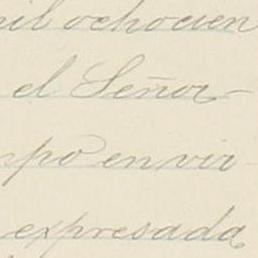 il ochocien
el Señor-
mpo en vir-
expresada